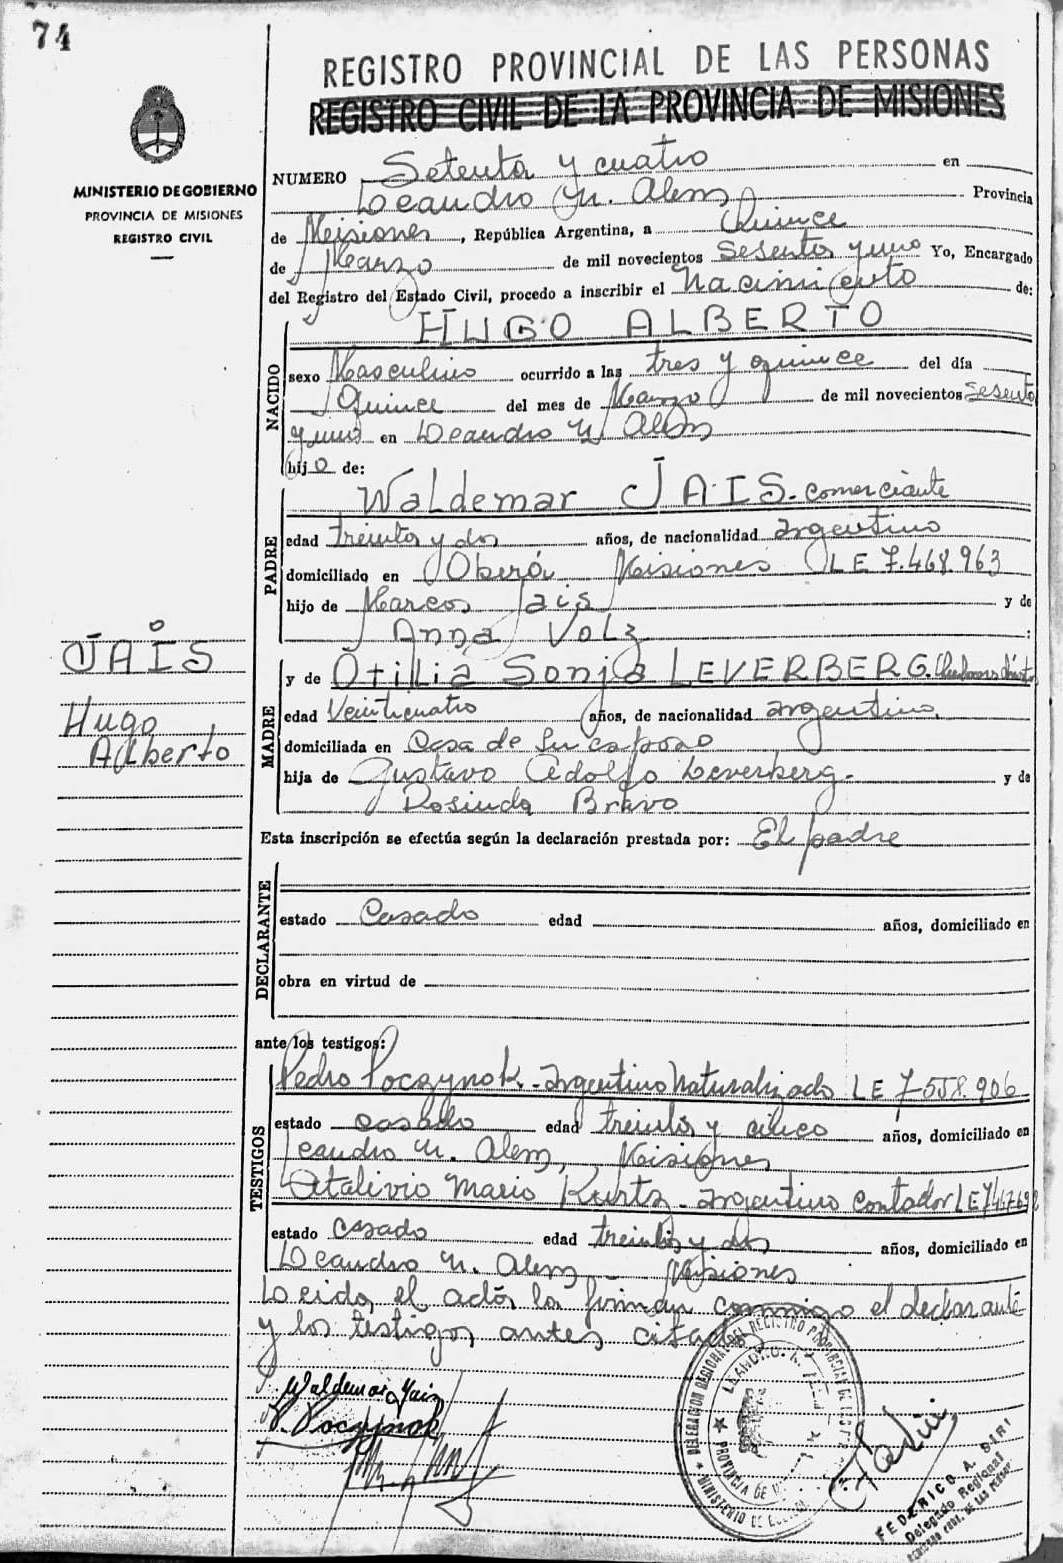 74
REGISTRO PROVINCIAL DE LAS PERSONAS
REGISTRO CIVIL DE LA PROVINCIA DE MISIONES
MINISTERIO DE GOBIERNO
PROVINCIA DE MISIONES
REGISTRO CIVIL
NUMERO Setenta y cuatro en
Leandro N. Alem Provincia
de Misiones, República Argentina, a Quince
de Marzo de mil novecientos Sesenta y uno Yo, Encargado
del Registro del Estado Civil, procedo a inscribir el Nacimiento de:
NACIDO
HUGO ALBERTO
sexo Masculino ocurrido a las tres y quince del día
Quince del mes de Marzo de mil novecientos Sesenta
y uno en Leandro N. Alem
hijo de:
PADRE
Waldemar JAIS. comerciante
edad treinta y dos años, de nacionalidad argentino
domiciliado en Oberá Misiones LE 7.468.963
hijo de Marcos Jais y de
Anna Volz
JAIS
Hugo
Alberto
MADRE
y de Otilia Sonja LEVERBERG.
edad Veinticuatro años, de nacionalidad argentina
domiciliada en Casa de su esposo
hija de Gustavo Adolfo Leverberg. y de
Rosinda Bravo
Esta inscripción se efectúa según la declaración prestada por: El padre
DECLARANTE
estado Casado edad años, domiciliado en
obra en virtud de
ante los testigos:
TESTIGOS
Pedro Poczynok - argentino Naturalizado LE 7558.906
estado casado edad treinta y cinco años, domiciliado en
Leandro N. Alem, Misiones
Atalivio Mario Kurtz - argentino contador LE
estado casado edad treinta y dos años, domiciliado en
Leandro N. Alem - Misiones
Leida el acta la firman conmigo el declarante
y los testigos antes citados
Waldemar Jais
P. Poczynok
DELEGACION REGIONAL DEL REGISTRO PROVINCIAL DE LAS
LEANDRO N.
PROVINCIA DE
MINISTERIO DE
FEDERICO A. SIRI
Delegado Regional